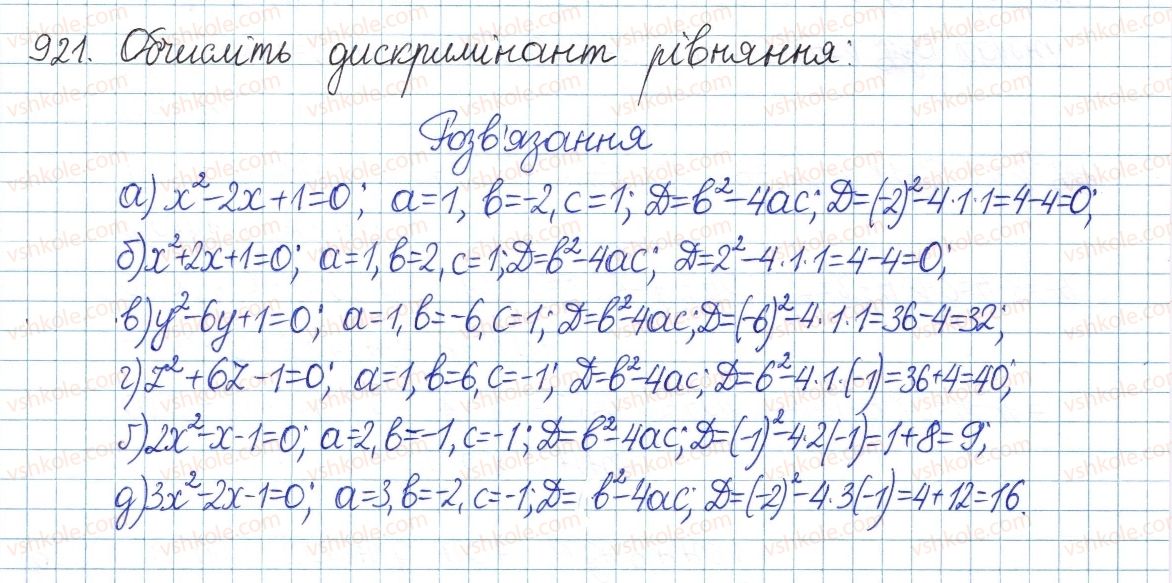 921. Обчисліть дискримінант рівняння:
Розв'язання
а) x²-2x+1=0; a=1, b=-2, c=1; D=b²-4ac; D=(-2)²-4·1·1=4-4=0;
б) x²+2x+1=0; a=1, b=2, c=1; D=b²-4ac; D=2²-4·1·1=4-4=0;
в) y²-6y+1=0; a=1, b=-6, c=1; D=b²-4ac; D=(-6)²-4·1·1=36-4=32;
г) z²+6z-1=0; a=1, b=6, c=-1; D=b²-4ac; D=6²-4·1·(-1)=36+4=40;
ґ) 2x²-x-1=0; a=2, b=-1, c=-1; D=b²-4ac; D=(-1)²-4·2(-1)=1+8=9;
д) 3x²-2x-1=0; a=3, b=-2, c=-1; D= b²-4ac; D=(-2)²-4·3(-1)=4+12=16.